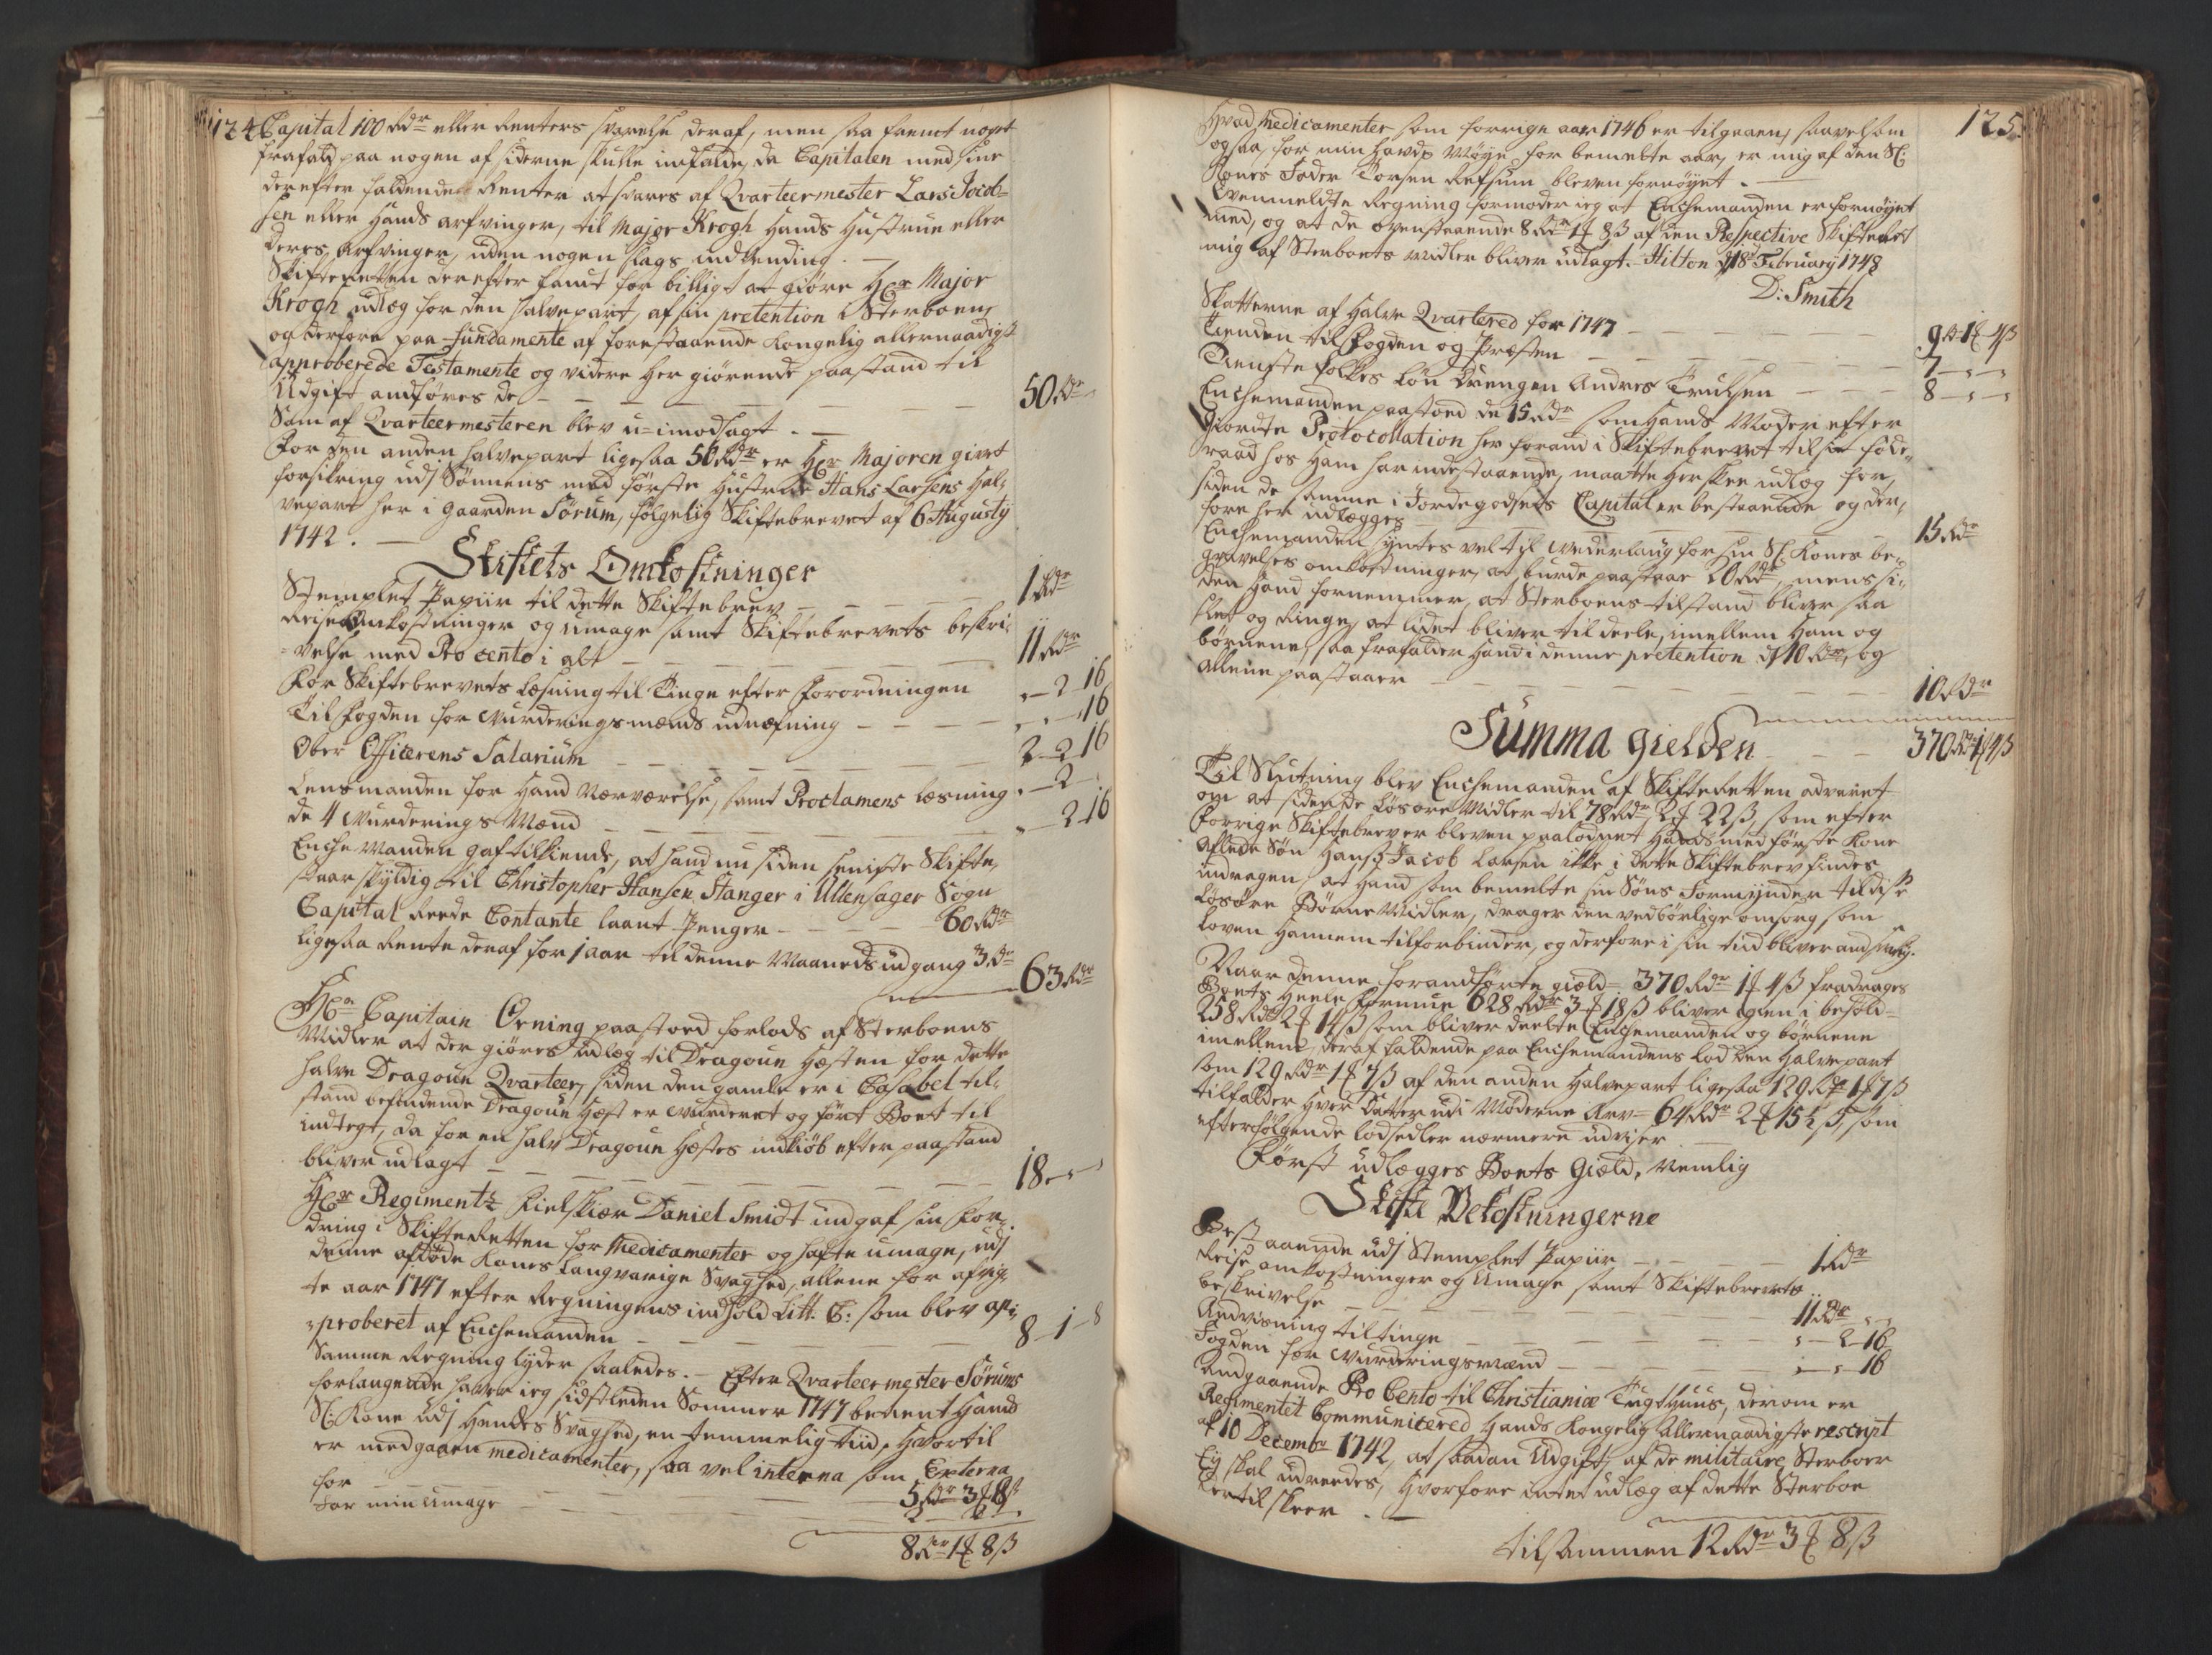 124 Capital 100 Rdr eller Renters svarelse deraf, men saa fremt noget
frafald paa nogen af siderne skulle indfalde, da Capitalen med sine
derefter faldende Renter at svares af Qvarteermester Lars Jocob-
sen eller Hands arfvinger, til Major Krogh Hands Hustrue eller
deres arfvinger, uden nogen slags indvending. —
Skifteretten derefter fandt for billigt at giøre Hr Major
Krogh udlæg for den halvepart, af sin pretention i Sterboen,
og derfore paa fundamente af forestaaende Kongelig allernaadigst
approberede Testamente og videre her giørende paastand til
Udgift andføres de — — — 50 Rdr
Som af Qvarteermesteren blev u-imodsagt. —
For den anden halvepart ligesaa 50 Rdr er Hr Majoren givet
forsikring udj Sønnens med første Hustrue Hans Larsens hal-
vepart her i gaarden Sørum, følgelig Skiftebrevet af 6 Augusty
1742. —
Skiftets Omkostninger
Stemplet Papiir til dette Skiftebrev — — — 1 Rdr
Reise Omkostninger og umage samt Skiftebrevets beskri-
velse med Pro cento i alt — — — 11 Rdr
For Skiftebrevets læsning til Tinge efter Forordningen „—2—16
Til Fogden for Vurderingsmænds udnæfning — — „—„—16
Ober Officerens Salarium — — — 2—2—16
Lensmanden for Hand Nærværelse, samt Proclamens læsning „—2—
de 4 Vurderings Mænd — — — „—2—16
Enche Manden gaf tilkiende, at hand nu siden seniste Skifte,
staar skyldig til Christopher Hansen Stanger i Ullensager Sogn
Capital Reede Contante laant Penger — — — 60 Rdr
ligesaa Rente deraf for 1 aar til denne Maaneds udgang 3 Rdr
63 Rdr
Hr Capitain Orning paastoed forlods af Sterboens
Midler at der giøres udlæg til Dragoun Hæsten for dette
halve Dragoun Qvarteer, siden den gamle er i Casabel til-
stand befindende Dragoun Hæst er vurderet og ført Boet til
indtegt, da for en halv Dragoun Hæstes indkiøb efter paastand
bliver udlagt — — — 18—„—
Hr Regiments Feltskiær Daniel Smidt indgaf sin for-
dring i Skifteretten for Medicamenter og hafte umage, udj
denne afdøde Kones langvarige Svaghed, allene for afvig-
te aar 1747 efter Regningens indhold Litt. C: som blev ap-
proberet af Enchemanden — — — 8—1—8
Samme Regning lyder saaledes. — Efter Qvarteermester Sørums
forlangende haver ieg sidstleden Sommer 1747 betient Hands
Sl: Kone udj Hendes Svaghed, en temmelig tiid, hvortil
er medgaaen medicamenter, saa vel interna som Externa
for — — — 5 Rdr 3 ₰ 8 ß
For min Umage — — — 2—2—„
8 Rdr 1 ₰ 8 ß
125.
Hvad Medicamenter som forrige aar 1746 er tilgaaen, saavelsom
ogsaa for min havde Møye for bemelte aar, er mig af den Sl:
Kones Fader Torsen Refsum bleven fornøyet. —
Ovenmeldte Regning formoder ieg at Enchemanden er fornøyet
med, og at de ovenstaaende 8 Rdr 1 ₰ 8 ß af den Respective Skifteret
mig af Sterboets Midler bliver udlagt. Hilton d 18 February 1748
D: Smith
Skatterne af halve Qvartered for 1747 — — — 9 Rdr 1 ₰ 4 ß
Tienden til Fogden og Præsten — — — 7—„—„
Tieneste folkes løn Drengen Andres Trulsen — — — 8—„—„
Enchemanden paastoed de 15 Rdr som Hands Moder efter
Giordte Protocollation her forand i Skiftebrevet til sit føde-
raad hos Ham har indestaaende, maatte her skee udlæg for,
siden de samme i Jordegodsets Capital er bestaaende og der-
fore her udlægges — — — 15 Rdr
Enchemanden syntes vel til vederlaug for sin Sl: Kones be-
gravelses omkostninger, at burde paastaae 20 Rdr, mens si-
den Hand fornemmer, at Sterboens tilstand bliver saa
slet og ringe, at lidet bliver til deele, imellem Ham og
børnene, saa frafalder hand i denne pretention d 10 Rdr, og
allene paastaaer — — — 10 Rdr
Summa Gielden — — 370 Rdr 1 ₰ 4 ß
Til Slutning blev Enchemanden af Skifteretten advaret
om at siden de Løsøre Midler til 78 Rdr 2 ₰ 22 ß, som efter
Forrige Skiftebrev er bleven paalodnet Hands med første Kone
Aflede Søn Hans Jacob Larsen ikke i dette Skiftebrev findes
inddragen, at Hand som bemelte sin Søns Formynder til disse
Løsøre Børne Midler, drager den vedbørlige omsorg som
Loven Hannem tilforbinder, og derfore i sin tiid bliver andsvarlig.
Naar denne forandførte gield 370 Rdr 1 ₰ 4 ß fradrages
Boets Heele Formue 628 Rdr 3 ₰ 18 ß bliver igien i behold
258 Rdr 2 ₰ 14 ß som bliver deelte Enchemanden og børnene
imellem, deraf faldende paa Enchemandens lod den halvepart
som 129 Rdr 1 ₰ 7 ß af den anden halvepart ligesaa 129 Rdr 1 ₰ 7 ß
tilfalder hver Datter udi Møderne Arv 64 Rdr 2 ₰ 15½ ß, som
efterfølgende lodsedler nærmere udviser —
Først udlægges Boets Giæld, nemlig
Skifte Bekostningerne
Bestaaende udj Stemplet Papiir — — — 1 Rdr
Reise omkostninger og Umage samt Skiftebrevets
beskrivelse — — — 11 Rdr „—„
Andvisning til tinge — — — „—2—16
Fogden for Vurderingsmænd — — — „—„—16
Andgaaende Pro Cento til Christianiæ Tugthuus, derom er
Regimentet Communicered Hands Kongelig Allernaadigste rescript
af 10 Decembr 1742, at saadan Udgift, af de militaire Sterboer
Ey skal udreedes, hvorfore intet udlæg af dette Sterboe
dertil skeer. —
tilsammen 12 Rdr 3 ₰ 8 ß